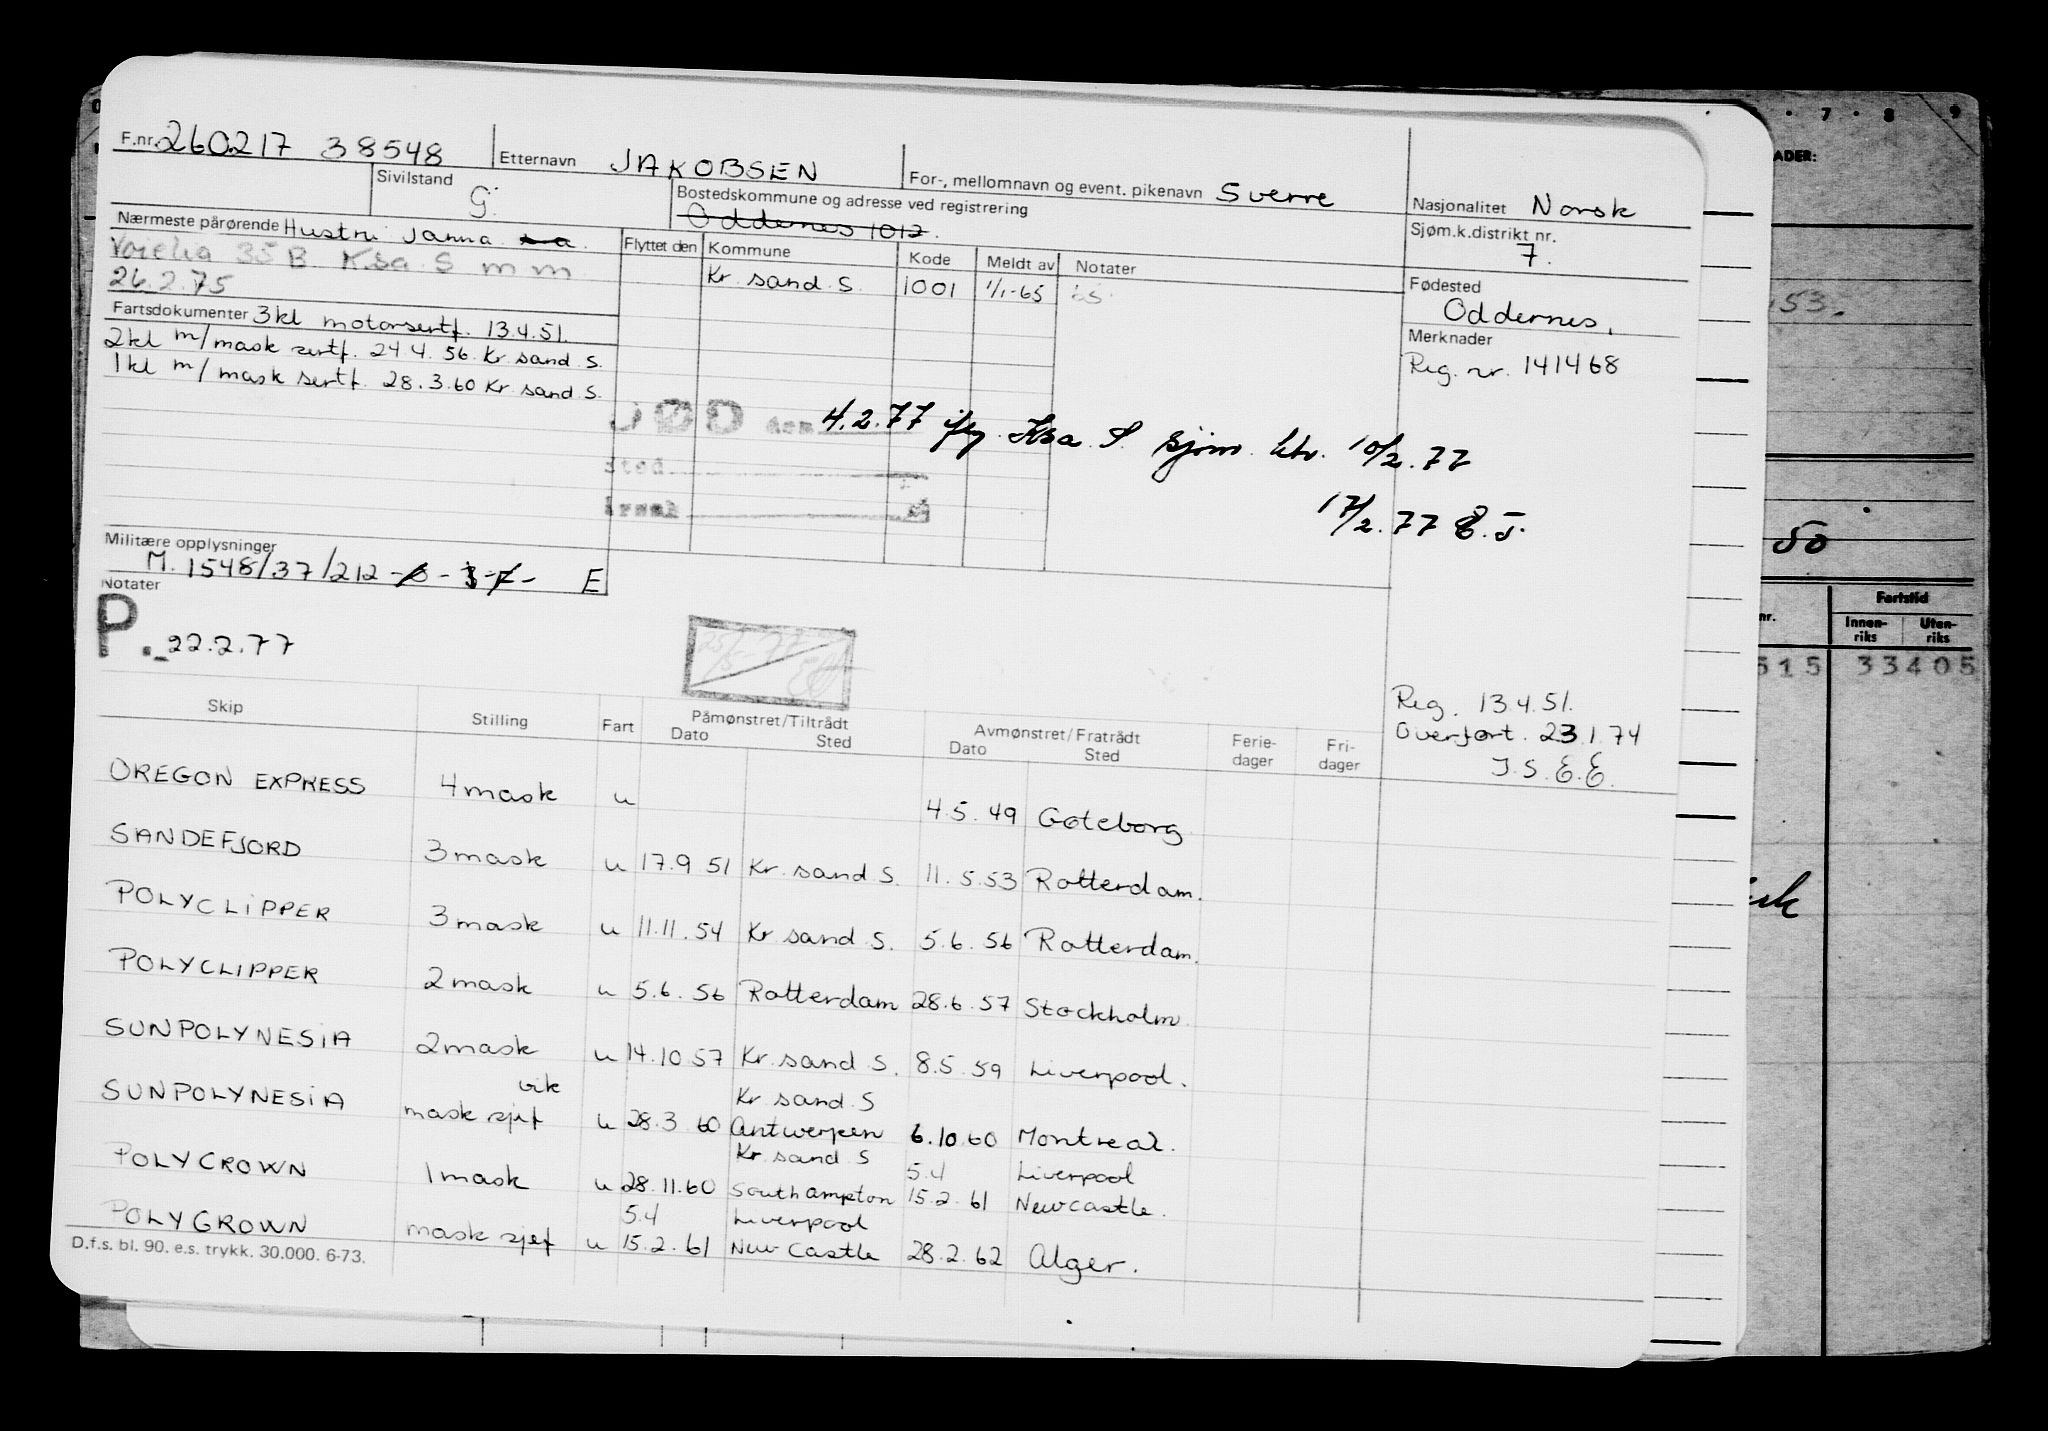 F.nr. 260217 38548 Etternavn JAKOBSEN For-, mellomnavn og event. pikenavn Sverre Nasjonalitet Norsk
Sivilstand G. Bostedskommune og adresse ved registrering Oddernes 1012. Sjøm.k.distrikt nr. 7.
Nærmeste pårørende Hustru Janna
35 B Ksa S m m
26.2.75
Flyttet den Kommune Kode Meldt av Notater
Kr. sand. S. 1001 1/1-65
Fødested
Oddernes,
Merknader
Reg. nr. 141468
Fartsdokumenter 3kl motorsertf. 13.4.51.
2kl m/mask sertf. 24.4.56. Kr. sand. S.
1kl m/mask sertf. 28.3.60 Kr. sand. S.
DØD den 4.2.77 Ksa. S. sjøm. ktr. 10/2.77
Sted
Årsak
17/2.77
Militære opplysninger
M. 1548/37/212 E
Notater
P. 22.2.77
Reg. 13.4.51.
Overført. 23.1.74
J.S. E.E.
Skip Stilling Fart Påmønstret/Tiltrådt Dato Sted Avmønstret/Fratrådt Dato Sted Ferie-dager Fri-dager
OREGON EXPRESS 4 mask u 4.5.49 Gøteborg
SANDEFJORD 3 mask u 17.9 51 Kr. sand S. 11.5.53 Rotterdam.
POLYCLIPPER 3 mask u 11.11.54 Kr sand. S. 5.6.56 Rotterdam.
POLYCLIPPER 2 mask u 5.6.56 Rotterdam 28.6.57 Stockholm
SUNPOLYNESIA 2 mask u 14.10 57 Kr. sand S. 8.5.59 Liverpool.
vik Kr. sand. S
SUNPOLYNESIA mask sjef u 28.3.60 Antwerpen 6.10.60 Montreal.
Kr. sand S 5.4 Liverpool
POLYCROWN 1 mask u 28.11.60 Southampton 15.2.61 Newcastle.
5.4 Liverpool
POLYCROWN mask sjef u 15.2.61 New Castle 28.2.62 Alger.
D.f.s. bl. 90. e.s. trykk. 30.000. 6-73.
7 8 9
ADER:
53.
50
nr. Fartstid
Innen-riks Uten-riks
515 33405